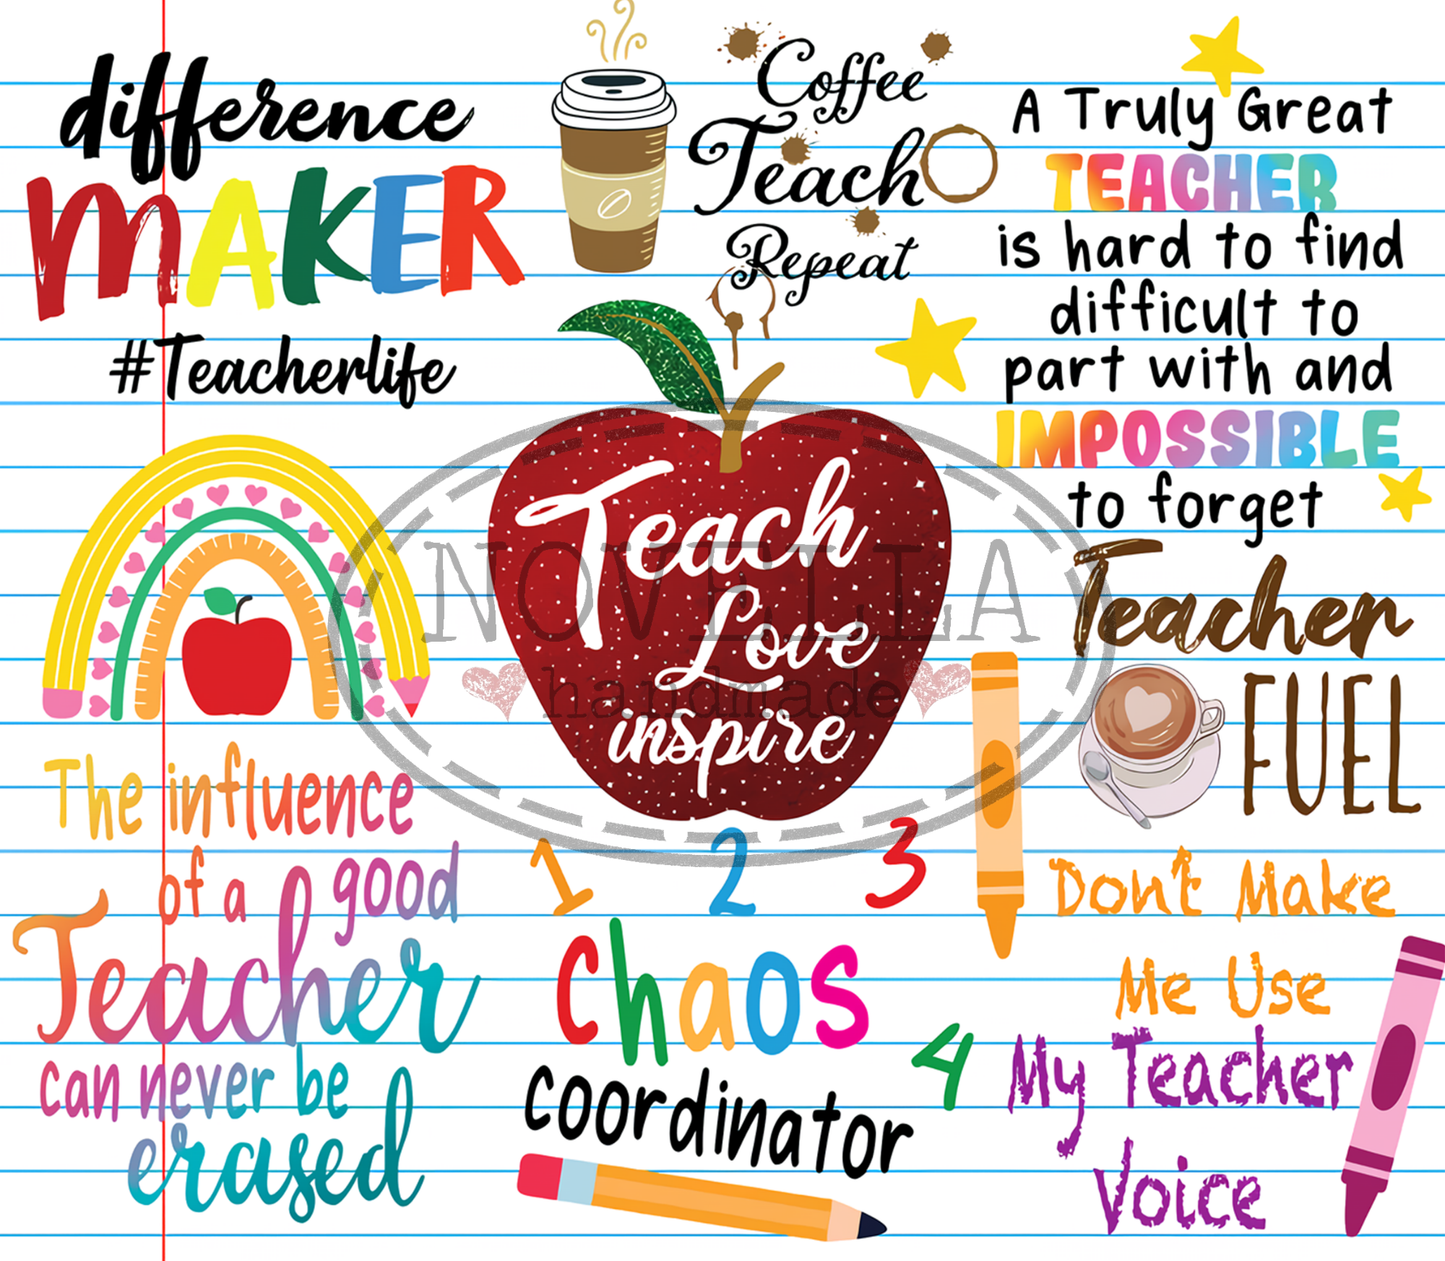 difference
MAKER
#Teacherlife
Coffee
Teach
Repeat
A Truly Great
TEACHER
is hard to find
difficult to
part with and
IMPOSSIBLE
to forget
Teach
Love
inspire
NOVELLA
handmade
Teacher
FUEL
The influence
of a good
Teacher
can never be
erased
1 2 3
Chaos
coordinator
4
Don't Make
Me Use
My Teacher
Voice